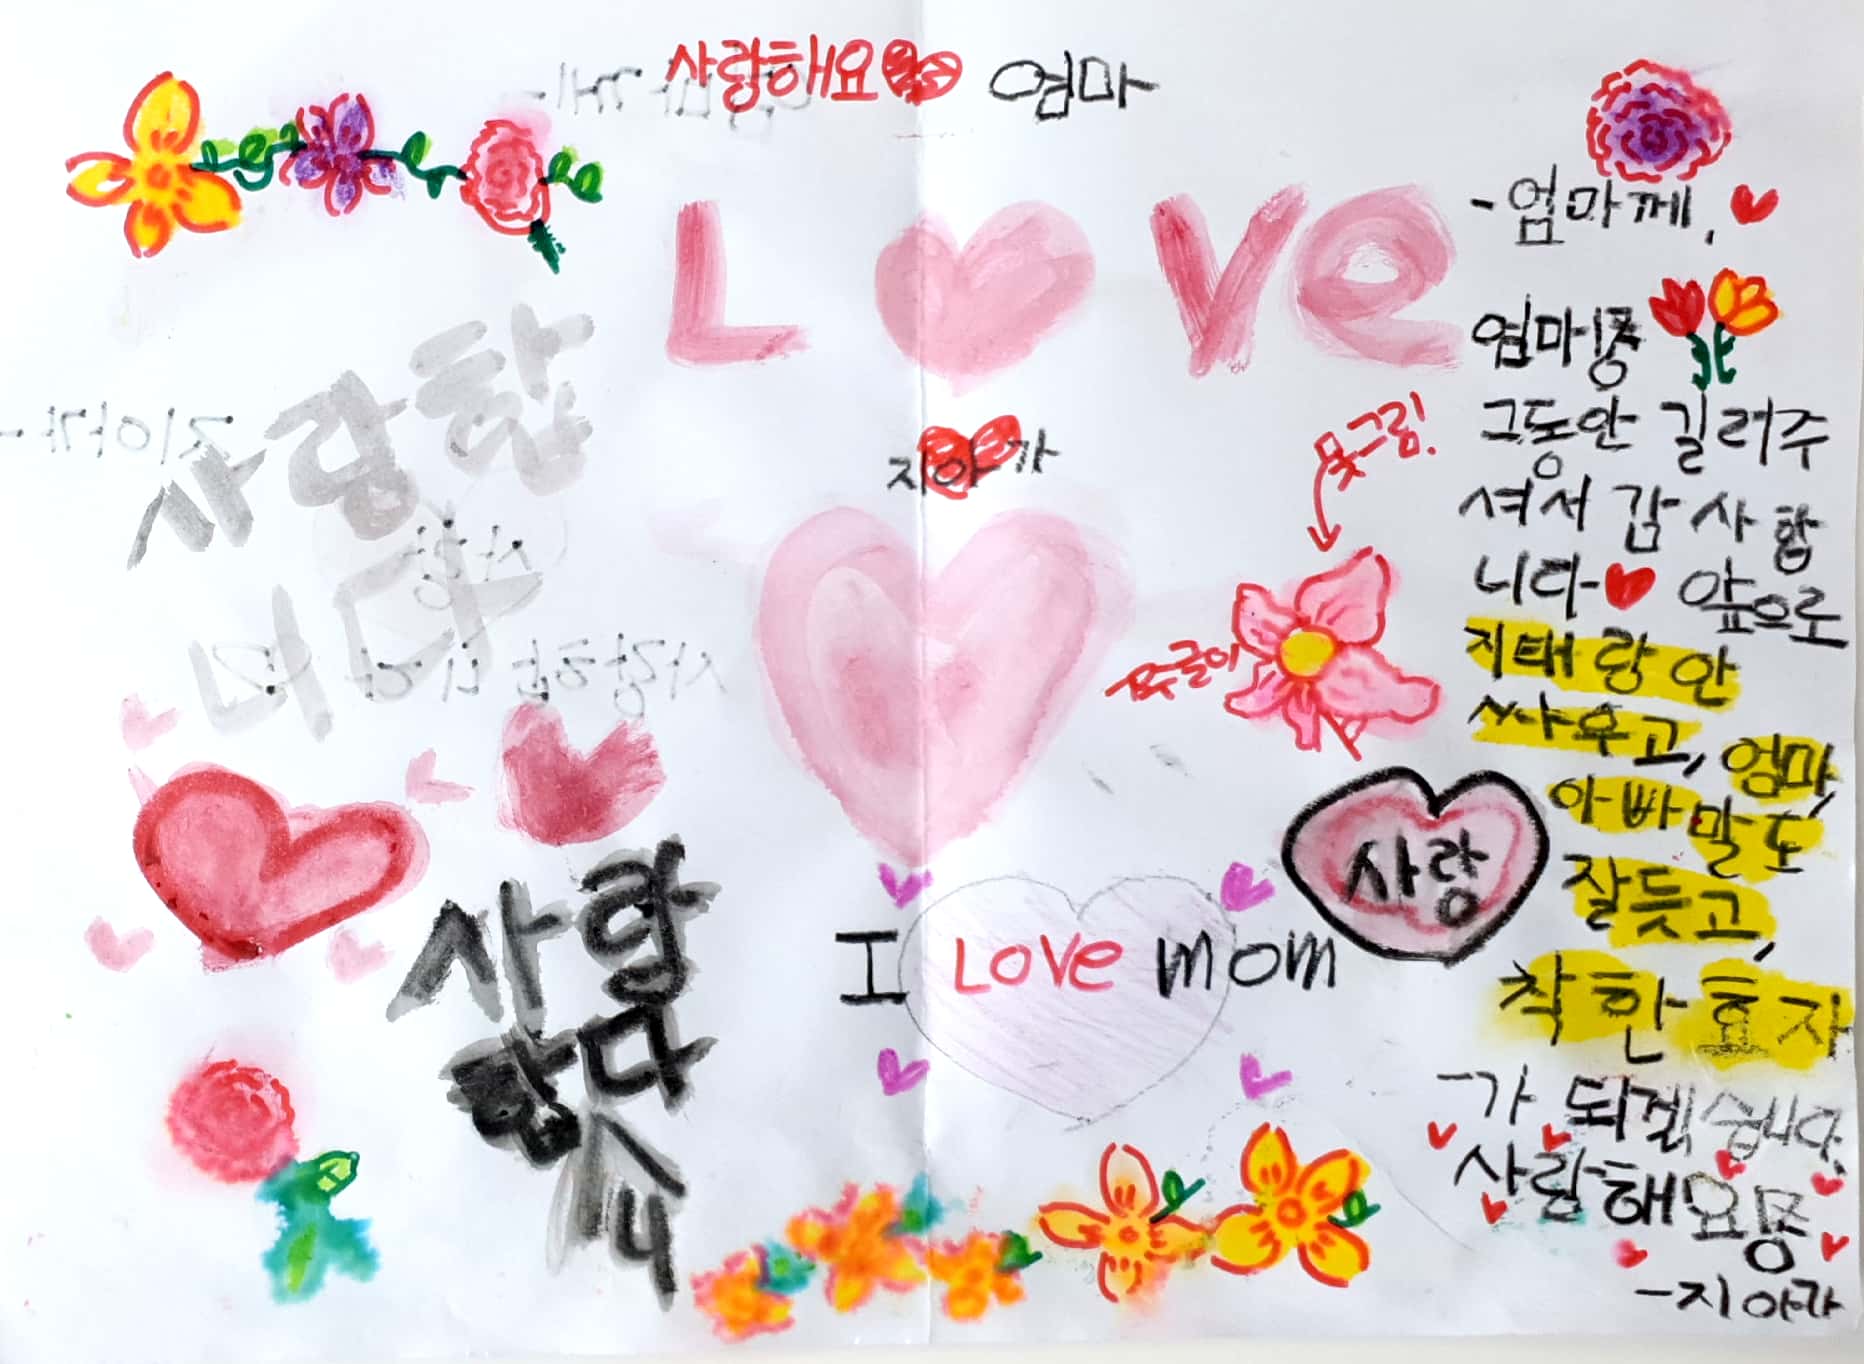 사랑해요 엄마
LOVE
지아가
사랑합
니다
못그림!
쭈글이
사랑
I LOVE mom
사랑
합니다
-엄마께,
엄마
그동안 길러주
셔서 감사합
니다 앞으로
지태랑 안
싸우고, 엄마,
아빠 말도
잘듣고,
착한 효자
-가 되겠습니다.
사랑해요
-지아가